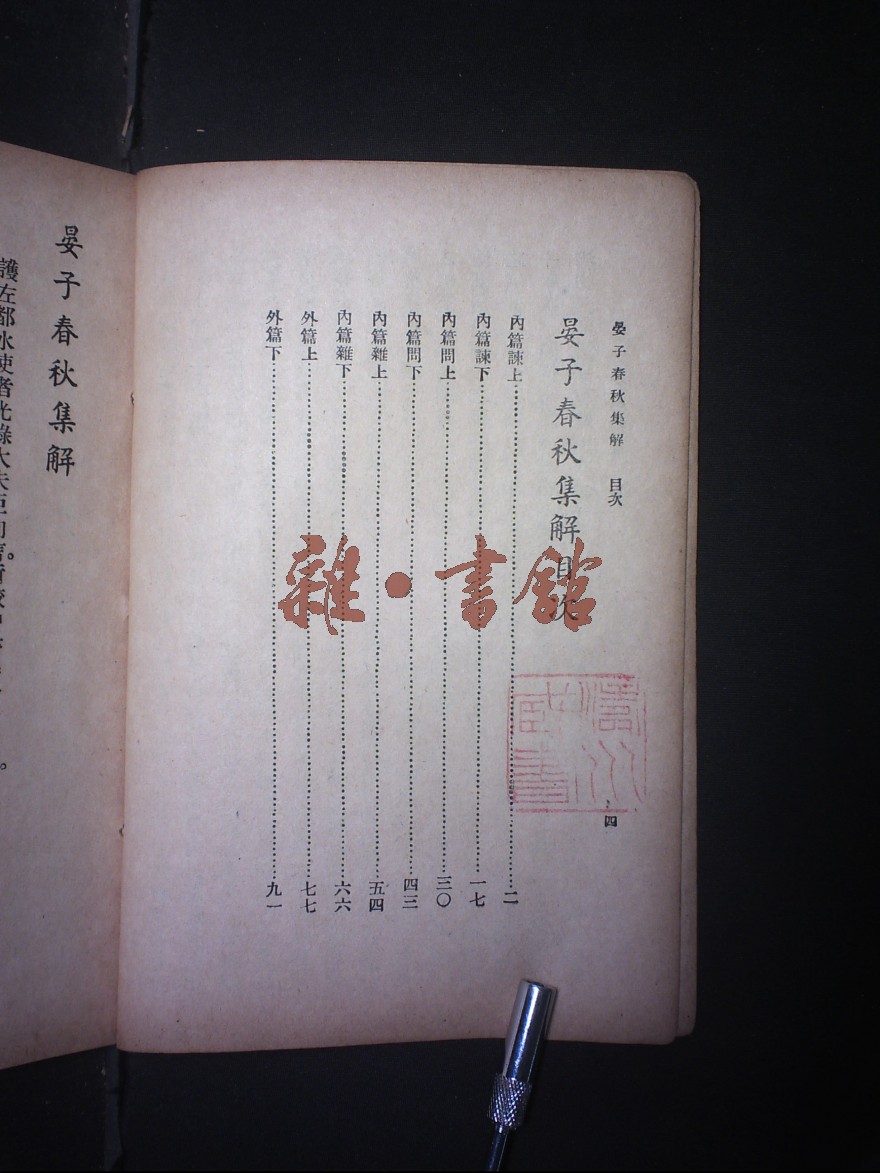 晏子春秋集解 目次 四
晏子春秋集解目次
內篇諫上……二
內篇諫下……一七
內篇問上……三〇
內篇問下……四三
內篇雜上……五四
內篇雜下……六六
外篇上……七七
外篇下……九一
雜·書館
晏子春秋集解
護左都水使者光祿大夫臣向言